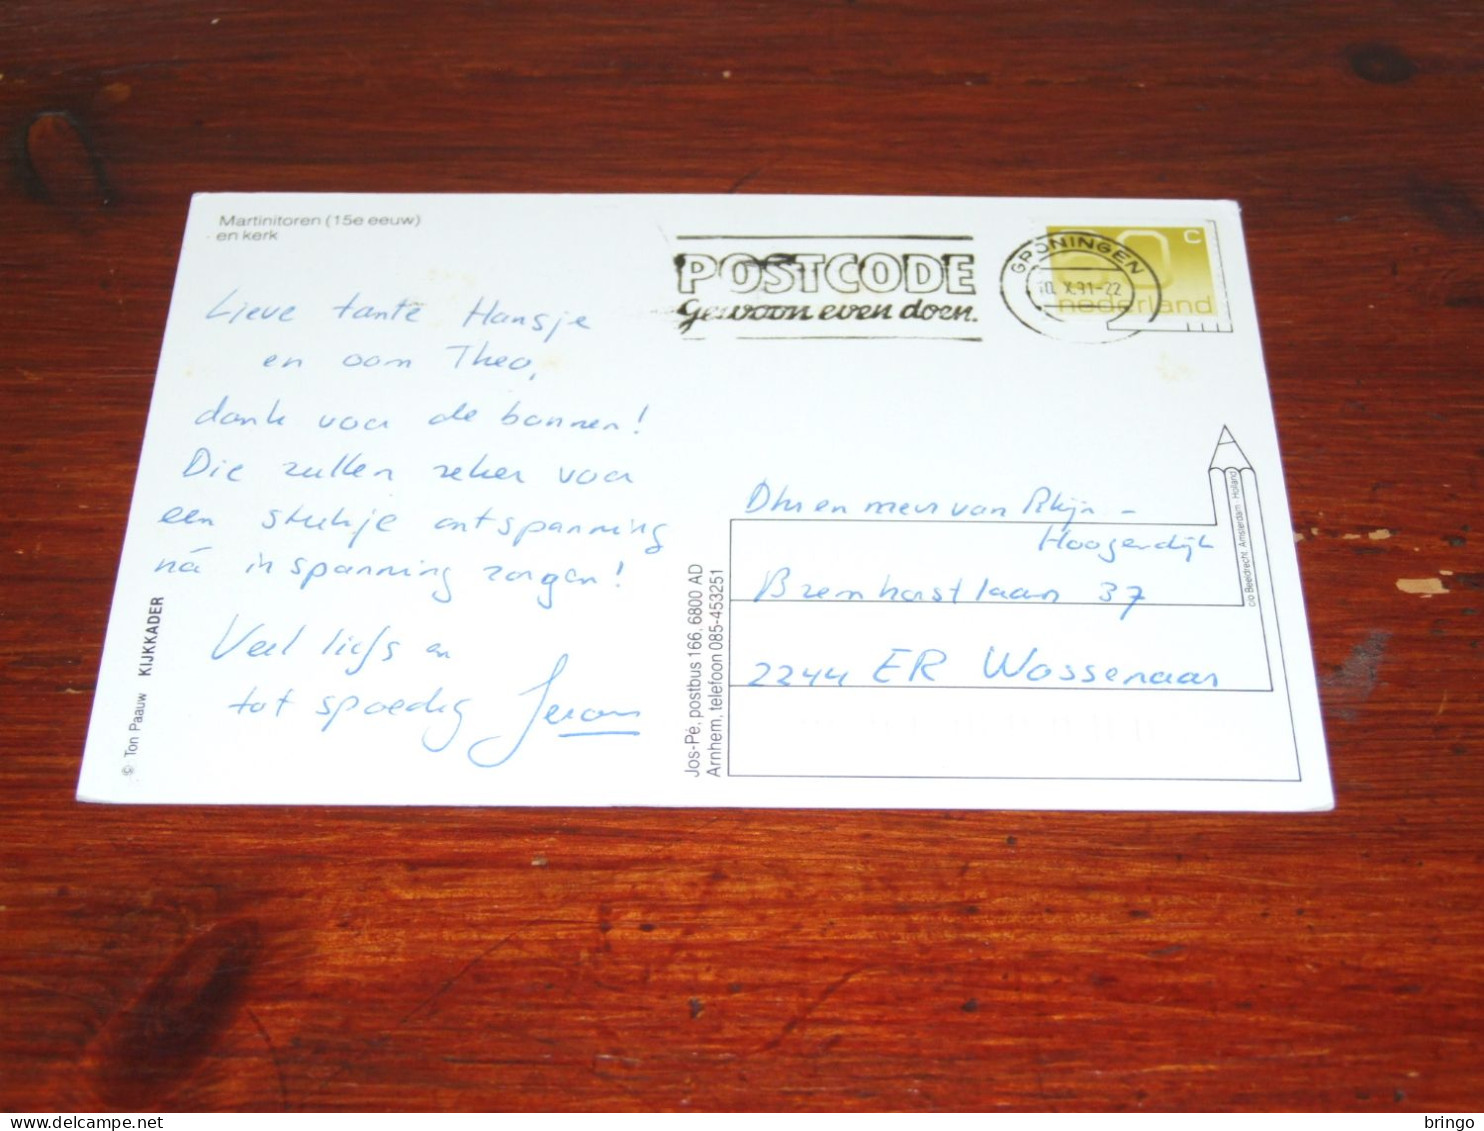 Martinitoren (15e eeuw)
en kerk
POSTCODE
Gewoon even doen.
GRONINGEN
10. X.91-22
c
nederland
Lieve tante Hansje
en oom Theo,
dank voor de bonnen!
Die zullen zeker voor
een stukje ontspanning
ná inspanning zorgen!
Veel liefs en
tot spoedig Jeroen
Dhr en mevr van Rhijn -
Hoogerdijk
37
2244 ER Wassenaar
© Ton Paauw KIJKKADER
Jos-Pé, postbus 166, 6800 AD
Arnhem, telefoon 085-453251
c/o Beeldrecht, Amsterdam - Holland
© delcampe.net
bringo